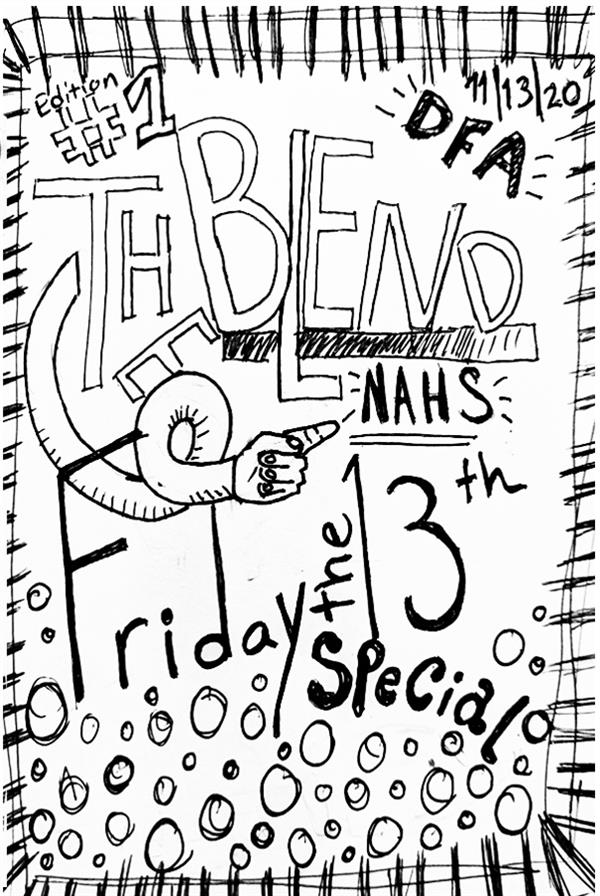 Edition
#1
11/13/20
DFA
THE BLEND
NAHS
Friday the 13th
Special